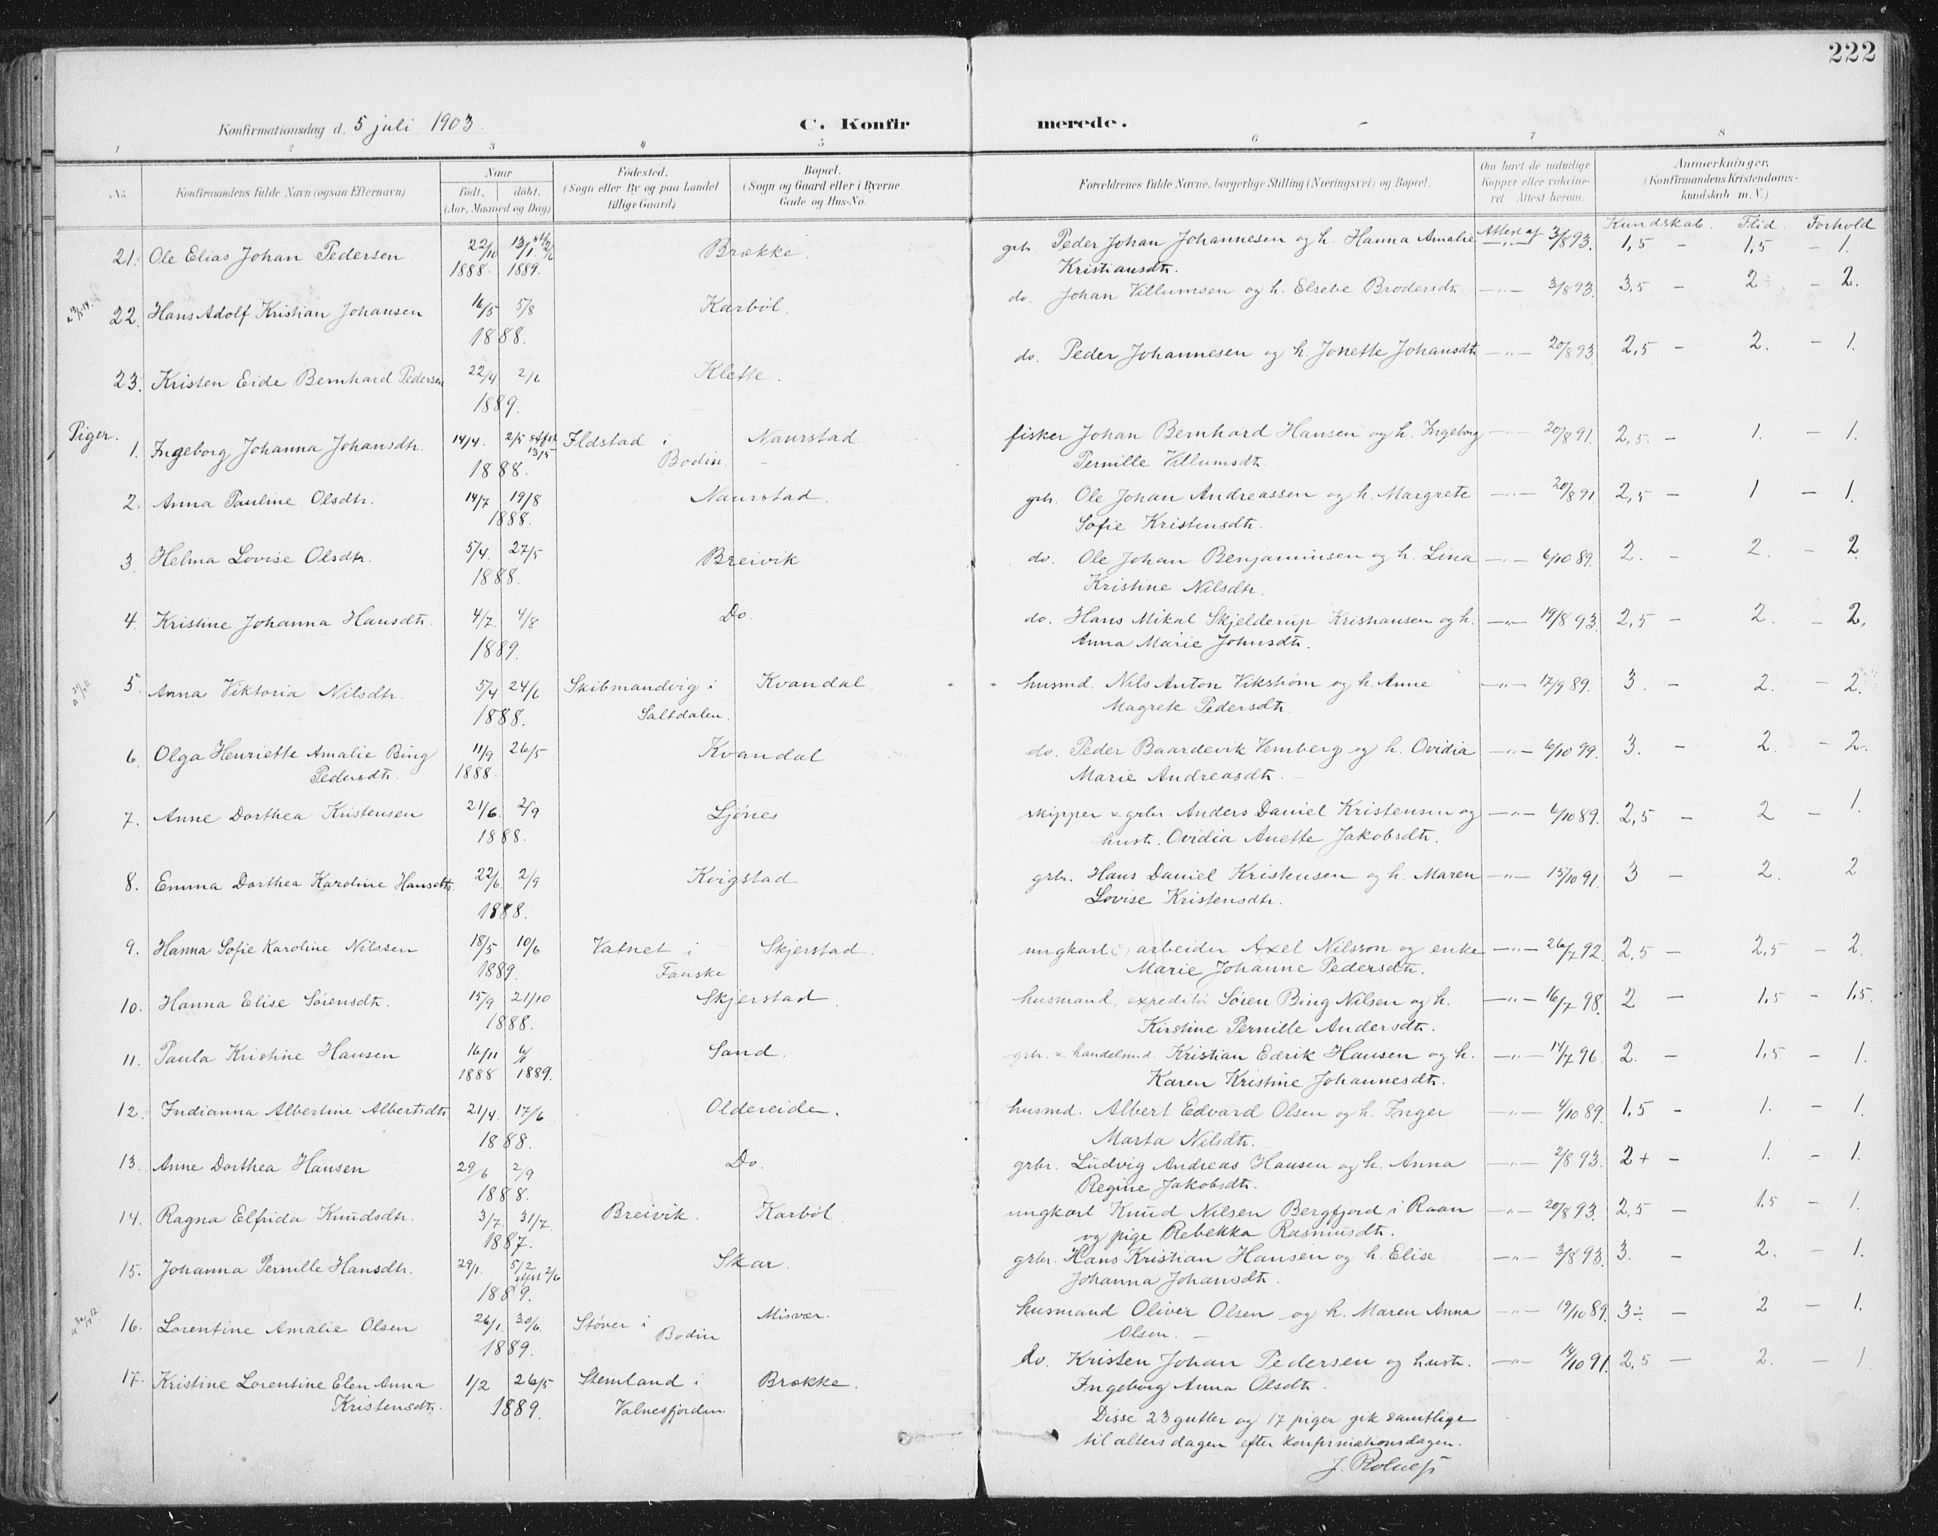 222
Konfirmationsdag d. 5 juli 1903.
C. Konfirmerede.
1 2 3 4 5 6 7 8
No. Konfirmandens fulde Navn (ogsaa Efternavn)
Naar födt. döbt. (Aar, Maaned og Dag)
Födested. (Sogn eller By og paa Landet tillige Gaard)
Bopæl. (Sogn og Gaard eller i Byerne Gade og Hus-No.
Forældrenes fulde Navne, borgerlige Stilling (Næringsvei) og Bopæl.
Om havt de naturlige Kopper eller vakcineret. Attest herom.
Anmærkninger, (Konfirmandens Kristendomskundskab m. V.)
Attest af Kundskab. Flid Forhold
21. Ole Elias Johan Pedersen 22/10 1888 13/1 1889. Brække. grbr. Peder Johan Johannesen og h. Hanna Amalie 3/8 93. 1,5 – 1,5 – 1.
Kristiansdtr.
22. Hans Adolf Kristian Johansen 16/5 5/8 Karböl. do. Johan Villumsen og h. Elsebe Brodersdtr. 3/8 93. 3,5 – 2 – 2.
1888.
23. Kristen Eide Bernhard Pedersen 22/4 2/6 Klette. do. Peder Johannesen og h. Jonette Johansdtr 20/8 93. 2,5 – 2. – 1.
1889.
Piger.
1. Ingeborg Johanna Johansdtr. 14/4. 2/5 13/5 Ildstad i Naurstad fisker Johan Bernhard Hansen og h. Ingeborg 20/8 91. 2,5 – 1. – 1.
1888. Bodin. Pernille Villumsdtr.
2. Anna Pauline Olsdtr. 14/7 19/8 Naurstad. grbr. Ole Johan Andreassen og h. Margrete 20/8 91 2,5 – 1 – 1.
1888. Sofie Kristensdtr.
3. Helma Lovise Olsdtr. 5/4. 27/5 Breivik do. Ole Johan Benjaminsen og h. Lina 6/10 89. 2. – 2. – 2.
1888. Kristine Nilsdtr.
4. Kristine Johanna Hansdtr. 4/7 4/8 Do. do. Hans Mikal Skjelderup Kristiansen og h. 19/8 93. 2,5 – 2. – 2.
1889. Anna Marie Johnsdtr.
5. Anna Viktoria Nilsdtr. 5/4 24/6 Skibmandvig i Kvandal. husmd. Nils Anton Vikström og h. Anne 17/9 89. 3. – 2. – 2.
1888. Saltdalen. Magrete Pedersdtr.
6. Olga Henriette Amalie Bing 11/9 26/5 Kvandal do. Peder Baardevik Vemberg og h. Ovidia 6/10 99. 3. – 2. – 2.
Pedersdtr. 1888. Marie Andreasdtr.
7. Anne Dorthea Kristensen 21/6. 2/9 Ljönes skipper & grbr. Anders Daniel Kristensen og 6/10 89. 2,5 – 2 – 1.
1888. hust. Ovidia Anette Jakobsdtr.
8. Emma Dorthea Karoline Hansdtr. 22/6. 2/9 Kvigstad grbr. Hans Daniel Kristensen og h. Maren 15/10 91. 3 – 2. 2
1888. Lovise Kristensdtr.
9. Hanna Sofie Karoline Nilssen 18/5 10/6 Vatnet i Skjerstad. ungkarl arbeider Axel Nilsson og enke 26/7 92. 2,5 – 2,5 – 2.
1889. Fauske Marie Johanne Pedersdtr.
10. Hanna Elise Sörensdtr. 15/9 21/10 Skjerstad. husmand, expeditör Sören Bing Nilsen og h. 16/7 98. 2 – 1,5 – 1,5.
1888. Kirstine Pernille Andersdtr.
11. Paula Kristine Hansen 16/11 6/1 Sand. grbr. & handelsmd. Kristian Edrik Hansen og h. 14/7 96. 2. – 1,5 – 1.
1888 1889. Karen Kristine Johannesdtr.
12. Indianna Albertine Albertsdtr. 21/4. 17/6 Oldereiden. husmd. Albert Edvard Olsen og h. Inger 4/10 89. 1,5 – 1. – 1.
1888. Marta Nilsdtr.
13. Anne Dorthea Hansen 29/6 2/9 Do. grbr. Ludvig Andreas Hansen og h. Anna 2/8 93. 2+ – 1. – 1.
1888. Regine Jakobsdtr.
14. Ragna Elfrida Knudsdtr. 3/7. 31/7 Breivik. Karböl. ungkarl Knud Nilsen Bergfjord i Raan 20/8 93. 2,5 – 1,5 – 1.
1887. og pige Rebekka Rasmusdtr.
15. Johanna Pernille Hansdtr. 29/1. 5/2 2/6 Skar. grbr. Hans Kristian Hansen og h. Elise 3/8 93. 3. – 2. – 1.
1889. Johanna Johansdtr.
16. Lorentine Amalie Olsen 26/1. 30/6. Stöver i Misvær. husmand Oliver Olsen og h. Maren Anna 19/10 89. 3÷ – 2 – 1.
1889. Bodin Olsen.
17. Kristine Lorentine Elen Anna 1/2 26/5 Stemland i Brække. do. Kristen Johan Pedersen og hustr. 14/10 91. 2,5 – 2. – 1
Kristensdtr. 1889. Valnesfjorden Ingeborg Anna Olsdtr.
Disse 23 gutter og 17 piger gik samtlige
til alters dagen efter konfirmationsdagen.